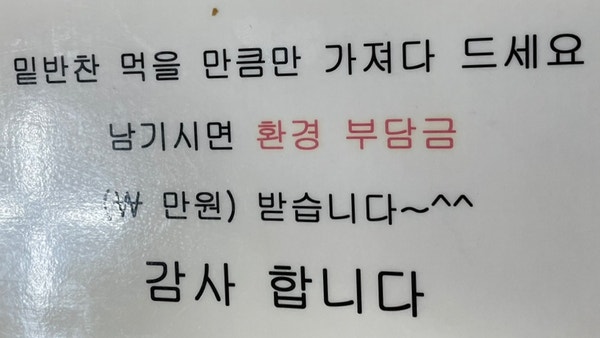 밑반찬 먹을 만큼만 가져다 드세요
남기시면 환경 부담금
(₩ 만원) 받습니다~^^
감사 합니다